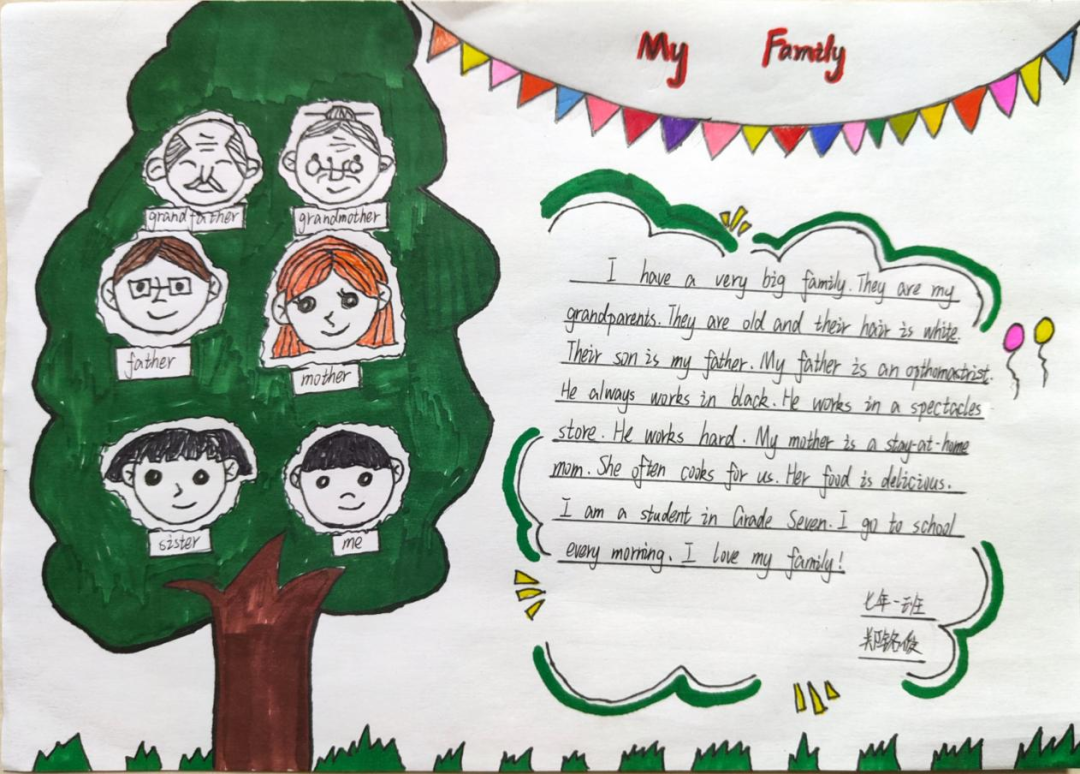 My Family
grandfather
grandmother
father
mother
sister
me
I have a very big family. They are my
grandparents. They are old and their hair is white.
Their son is my father. My father is an opthomastrist.
He always works in black. He works in a spectacles
store. He works hard. My mother is a stay-at-home
mom. She often cooks for us. Her food is delicious.
I am a student in Grade Seven. I go to school
every morning. I love my family!
七年一班
郑铭俊